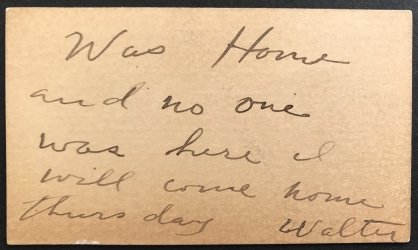 Was Home
and no one
was here I
will come home
thursday Walter